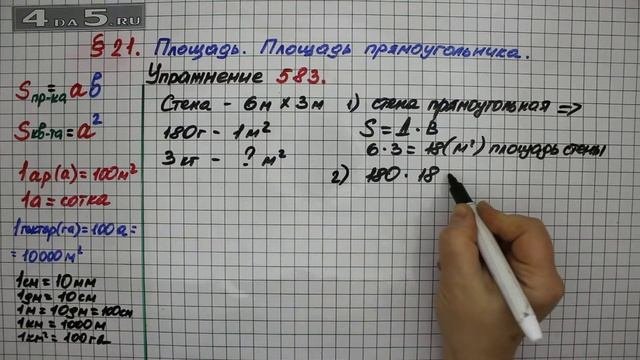 4 DA 5.RU
§ 21. Площадь. Площадь прямоугольника.
Упражнение 583.
Sпр-ка = aв
Sкв-та = a²
1 ар (а) = 100 м²
1а = сотка
1 гектар (га) = 100 а =
= 10000 м²
1 см = 10 мм
1 дм = 10 см
1 м = 10 дм = 100 см
1 км = 1000 м
1 км² = 100 га
Стена – 6м × 3м
180г – 1м²
3 кг – ? м²
1) стена прямоугольная =>
S = Д · В
6 · 3 = 18 (м²) площадь стены
2) 180 · 18